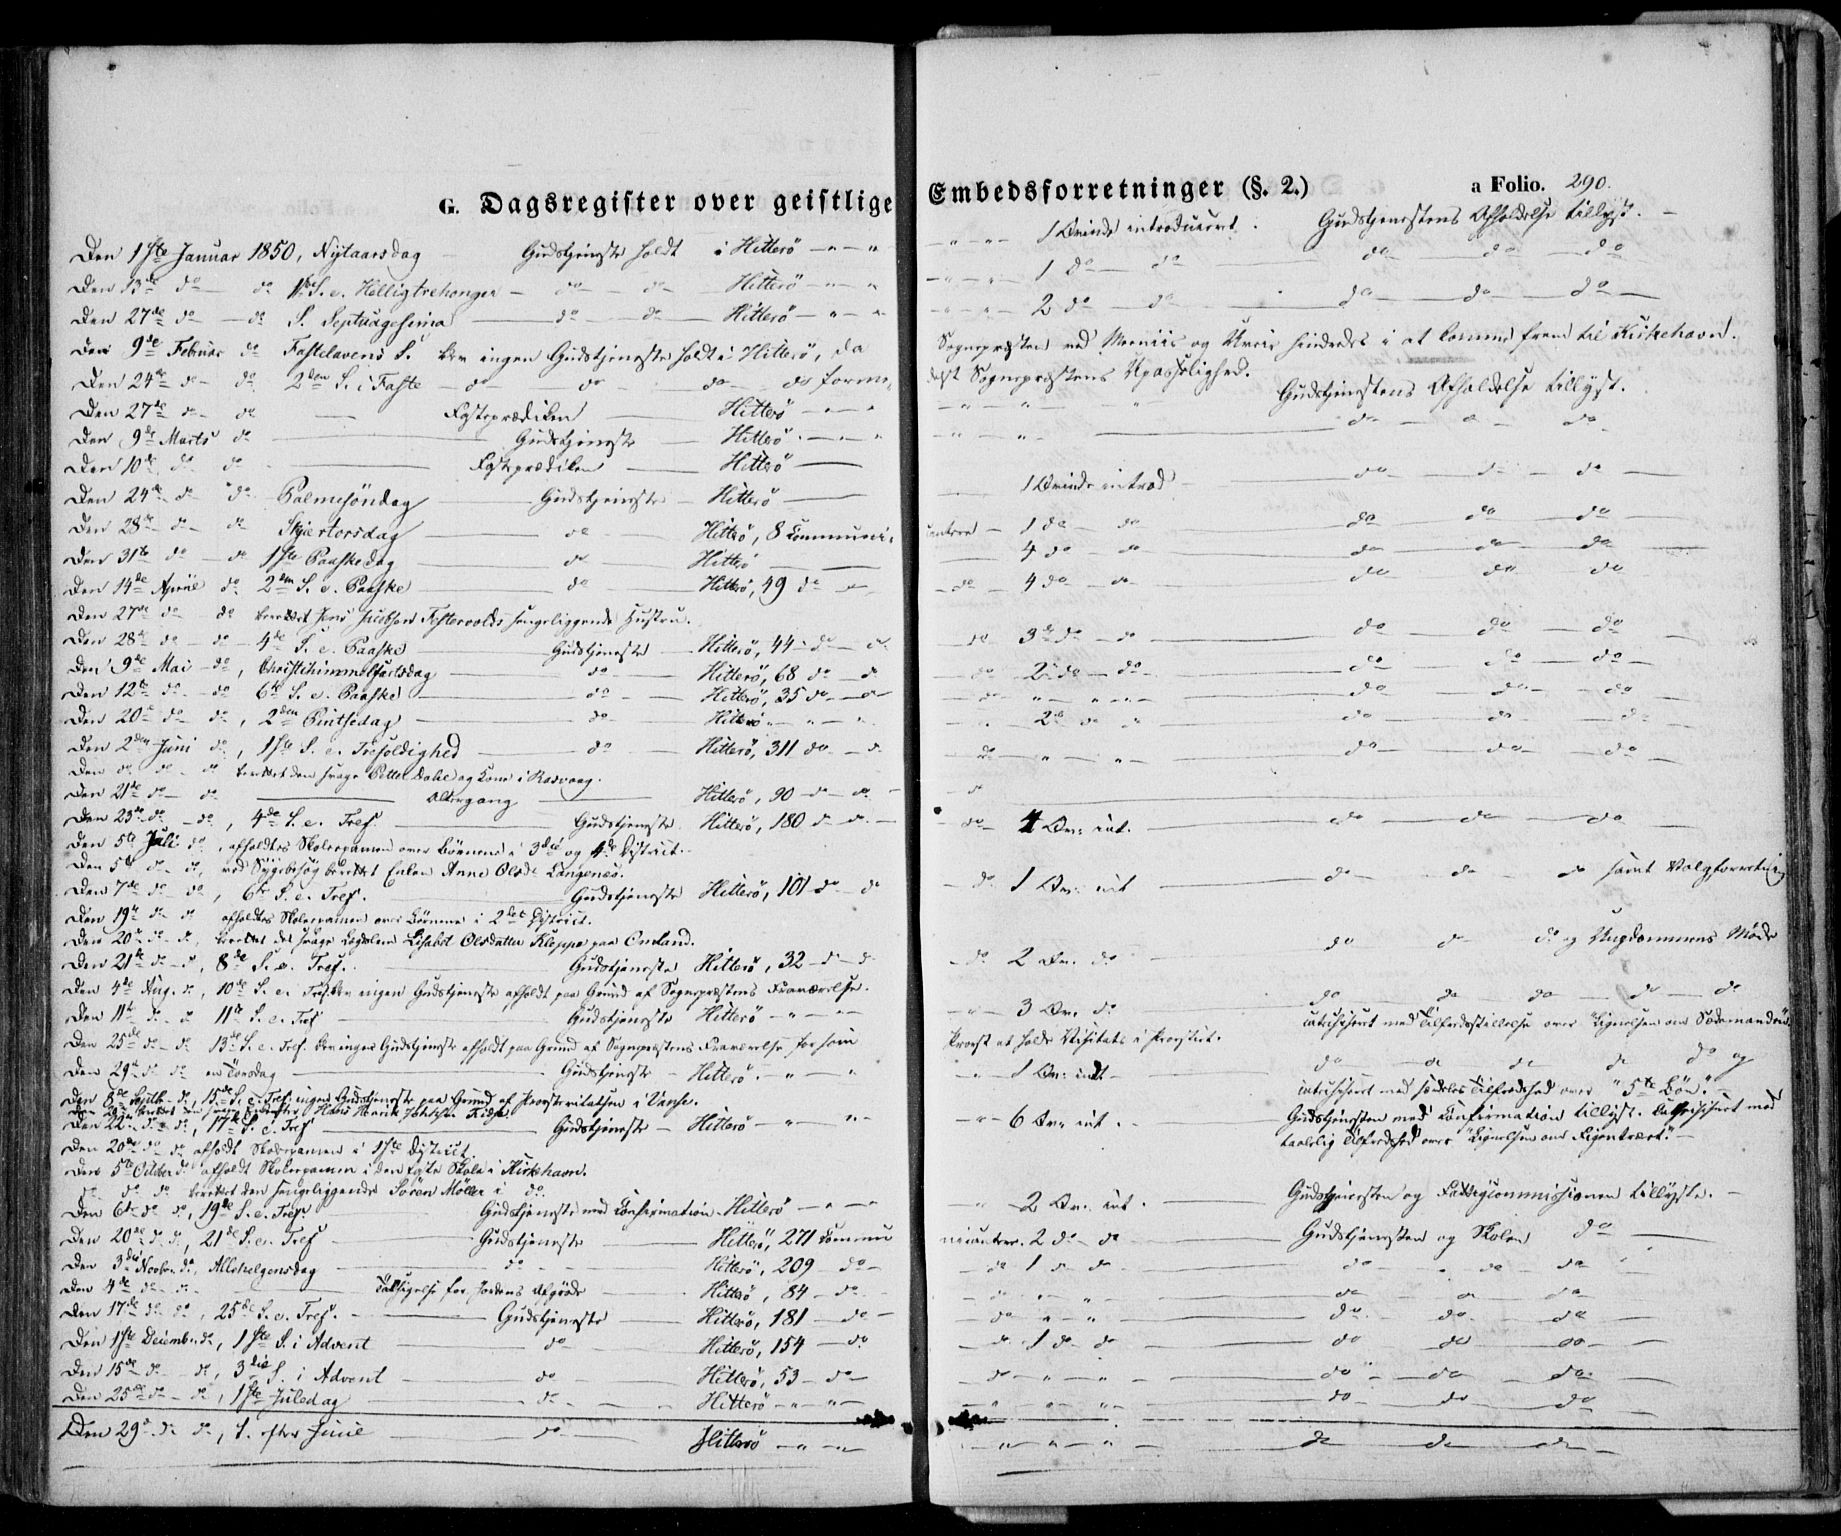 G. Dagsregister over geistlige Embedsforretninger (§. 2.) a Folio. 290.
Den 1ste Januar 1850, Nytaarsdag — Gudstjeneste holdt i Hitterö — " — " — " — 1 Qvinde introduceret. Gudstjenestens Afholdelse tillyst. —
Den 13de do — do 1ste S. e. Helligtrekonger — do — do — Hitterö — " — " — 1 do — do — do — do — do
Den 27de do — do S. Septuagesima — do — do — Hitterö — " — " — 2 do — do — do — do — do —
Den 9de Februar do Fastelavens S. blev ingen Gudstjeneste holdt i Hitterö, da Sognepræsten ved og hindredes i at komme frem til Kirkehavn.
Den 24de do — do 2den S. i Faste — do — do — do — do Sognepræstens Upasselighed.
Den 27de do — do — Fasteprædiken — Hitterö — " — " — Gudstjenestens Afholdelse tillyst.
Den 9de Marts do — Gudstjeneste — Hitterö — " — " — do — do — do
Den 10de do do — Fasteprædiken — Hitterö —
Den 24de do — do Palmesöndag — Gudstjeneste — Hitterö — 1 Qvinde introd — do — do — do
Den 28de do — do Skjertorsdag — do — Hitterö, 8 Communicantere — 1 do — do — do — do — do
Den 31te do — do 1ste Paaskedag — do — Hitterö — 4 do — do — do — do — do
Den 14de April do 2den S. e. Paaske — do — Hitterö, 49 do — do — 4 do — do — do — do — do
Den 27de do — do berettet Jens Jacobsen sengeliggende Hustru.
Den 28de do — do — 4de S. e. Paaske — Gudstjeneste — Hitterö, 44 — do — do 3de do — do — do — do — do
Den 9de Mai — do, Christihimmelfartsdag — do — Hitterö, 68 do — do 2 do — do — do — do — do
Den 12te do — do 6te S. e. Paaske — do — Hitterö, 35 do — do — " — " — do — do — do
Den 20de do — do, 2den Pintsedag — do — Hitterö — " — " 2 do " — do — do — do
Den 2den Juni do, 1ste S. e. Trefoldighed — do — Hitterö, 311 do — do — " — " — do — do — do
Den do do — do berettet den svage Petter Dahl og Kone i Rasvaag.
Den 21de do — do — Altergang — Hitterö, 90 — do — do
Den 23de do — do, 4de S. e. Tref. — Gudstjeneste Hitterö, 180 do — do — 4 Qv: int. — do — do — do
Den 5te Juli do, afholdtes Skoleexamen over Börnene i 3die og 4de District.
Den 5te do — do, ved Sygebesög berettet Enken Anne Olsd: Langenæs.
Den 7de do — do, 6te S. e. Tref. — Gudstjeneste Hitterö, 101 do — do 1 Qv: int — do — do — do samt Valgforretning
Den 19de do do afholdtes Skoleexamen over Börnene i 2det District.
Den 20de do — do, berettet det svage Lisabet Olsdatter Kleppe paa Omland.
Den 21de do — do, 8de S. e. Tref. — Gudstjeneste Hitterö, 32 — do — do 2 Qv. do — do — do — do og Ungdommens Möde
Den 4de Aug. do, 10de S. e. Tref. blev ingen Gudstjeneste afholdt paa Grund af Sognepræstens Fraværelse.
Den 11te do — do 11te S. e. Tref — Gudstjeneste Hitterö — " — " — 3 Qv. do — do — do — do — do — do
catechiseret med Tilfredsstillelse over "Lignelsen om Sædemanden".
Den 25de do — do 13de S. e. Tref. blev ingen Gudstjeneste afholdt paa Grund af Sognepræstens Fraværelse for som Provst at holde Visitats i Provstiet.
Den 29de do do en Torsdag — Gudstjeneste — Hitterö. — " — " — 1 Qv: int — do — do — do — do — do og
catechiseret med Tilfredshed over "5te Bön".
Den 8de Septb. do, 15de S. e. Tref. ingen Gudstjeneste paa Grund af Provstevisitatsen i Vanse.
Den berettet den svage Hans Henrik
Den 22de do do, 17de S. e. Tref — Gudstjeneste — Hitterö — " — " — 6 Qv: int. — Gudstjenesten med Confirmation tillyst. Catechiseret med
taalelig Tilfredshed over "Lignelsen om Figentræet." —
Den 20de do do afholdt Skoleexamen i 1ste District.
Den 5te October do afholdt Skoleexamen i den faste Skole i Kirkehavn.
do do do berettet den sengeliggende Sören Möller i do.
Den 6te do do, 19de S. e. Tref — Gudstjeneste med Confirmation. Hitterö — " — " — 2 Qv. int. — Gudstjenesten og Fattigcommissionen tillyste. —
Den 20de do do, 21de S. e. Tref — Gudstjeneste — Hitterö, 271 Communicanter. 2 do — do — Gudstjenesten og Skolen do —
Den 3die Novbr. do, Allehelgensdag — do — Hitterö, 209 — do — do 1 do do — do — do — do
Den 4de do — do — Taksigelse for Jordens Afgröde — Hitterö, 84 — do — " — " — do — do — do
Den 17de do do, 25de S. e. Tref. — Gudstjeneste — Hitterö, 181 — do — do — " — " — do — do — do
Den 1ste Decemb. do, 1ste S. i Advent — do — Hitterö, 154 — do — do 1 do — do — do — do — do
Den 15de do — do, 3die S. i Advent — do — Hitterö, 53 — do — do — " — " — do — do — do
Den 25de do — do, 1ste Juledag — do — Hitterö — " — " — " — " — do — do — do
Den 29de do do, S. efter Juul — do — Hitterö — " — " — " — " — do — do — do